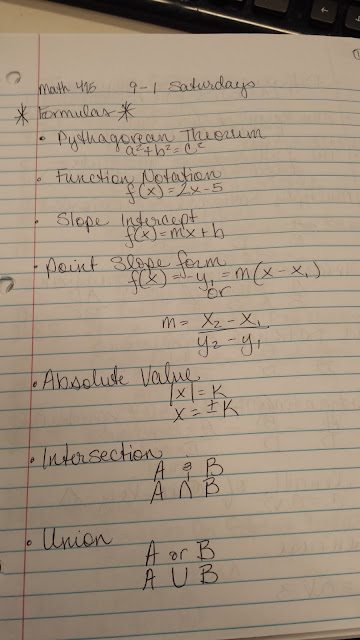 Math 415 9-1 Saturdays
* Formulas *
• Pythagorean Theorum
a²+b²=c²
• Function Notation
f(x)=2x-5
• Slope Intercept
f(x)=mx+b
• Point Slope form
f(x)=-y₁=m(x-x₁)
or
m= x₂-x₁
y₂-y₁
• Absolute Value
|x|=K
x=±K
• Intersection
A & B
A ∩ B
• Union
A or B
A U B